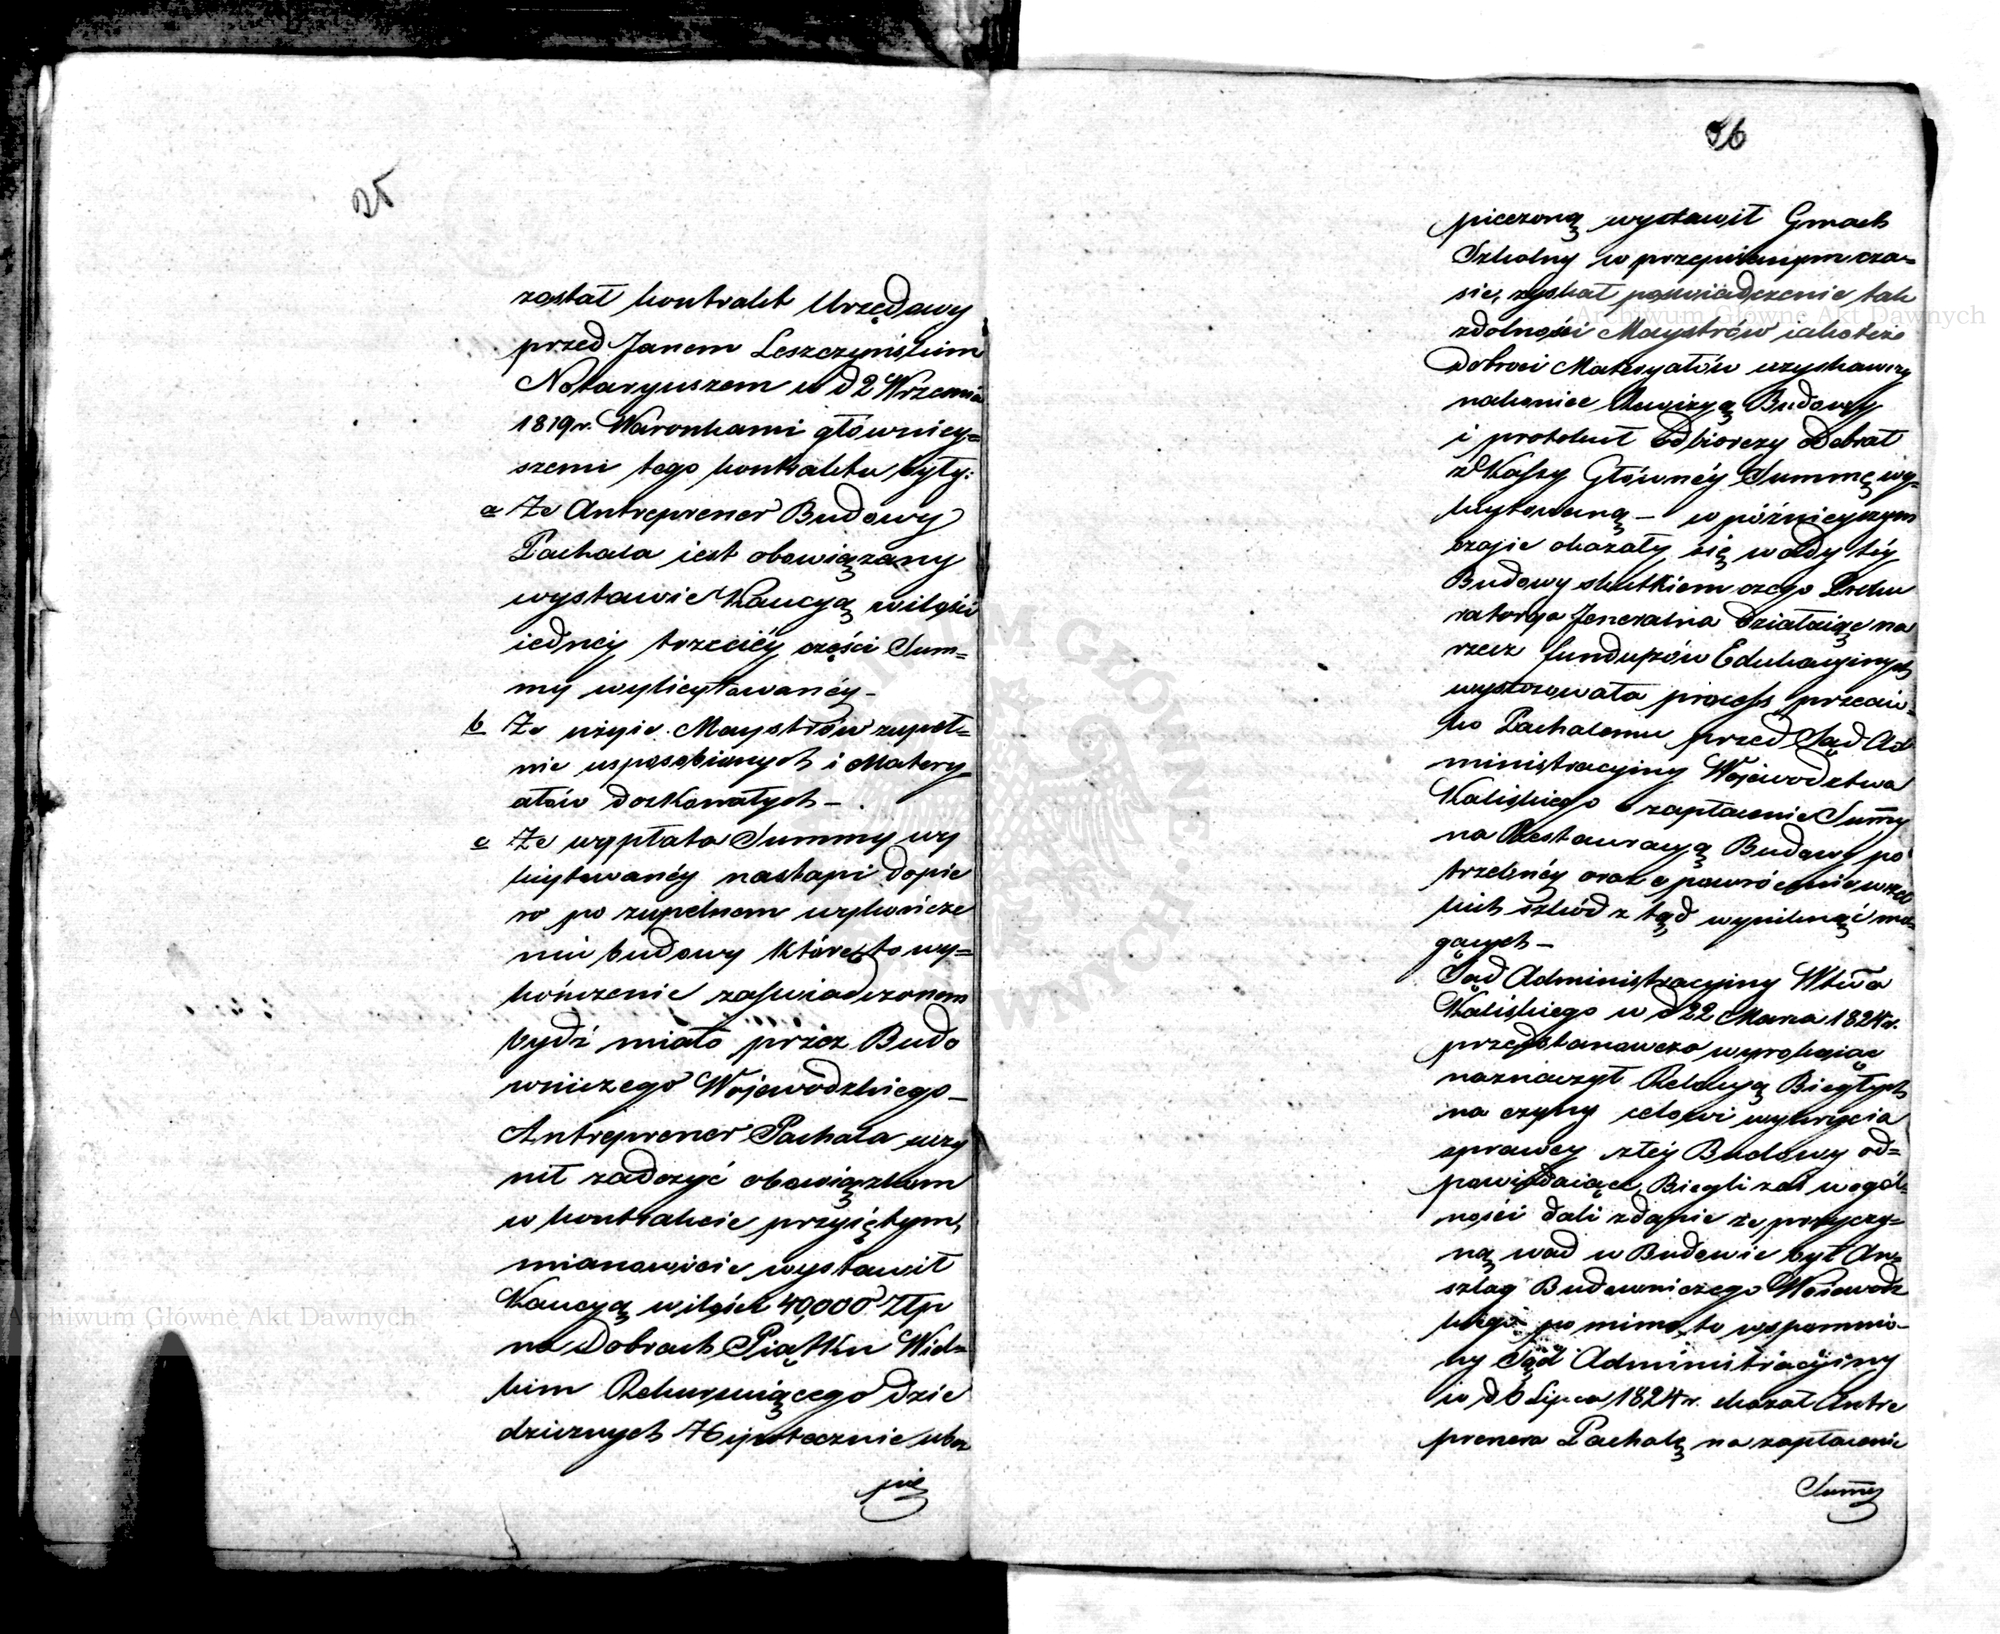 95
został kontrakt Urzędowy
przed Janem Leszczyńskim
Notaryuszem w d 2 Września
1819 r. Warunkami główniey=
szemi tego kontraktu były:
a Że Antreprener Budowy
Pachala iest obowiązany
wystawić Kaucyą w ilości
iedney trzeciéy części Sum=
my wylicytowanéy –
b Że użyie Maystrów zupeł=
nie usposobionych i Matery
ałów doskonałych –
c Że wypłata Summy wy
licytowanéy nastąpi dopie
ro po zupełnem wykończe
niu budowy które to wy=
kończenie zaświadczonem
bydź miało przez Budo
wniczego Woiewodzkiego –
Antreprener Pachala uczy
nił zadosyć obowiązkom
w kontrakcie przyiętym,
mianowicie wystawił
Kaucyą w ilości 40,000 Złp
na Dobrach Piątku Wiel=
kim Rekurującego dzie
dzicznych Hipotecznie ubez
pie
96
pieczoną wystawił Gmach
Szkolny w przepisanym cza=
sie, zyskał poświadczenie tak
zdolności Maystrów iakoteż
dobroci Materyałów uzyskawszy
nakoniec Rewizyą Budowy
i protokuł Odbiorczy odebrał
z Kassy Głównéy Summę wy=
licytowaną – w późnieyszym
czasie okazały się wady téy
Budowy skutkiem czego Proku
ratorya Jeneralna działaiąc na
rzecz funduszów Edukacyinych
wystosowała process przeciw=
ko Pachalemu przed Sąd Ad
ministracyiny Województwa
Kaliskiego o zapłacenie Summy
na Restauracyą Budowy po
trzebnéy oraz o powrócenie wszel
kich szkód z tąd wyniknąć mo=
gących –
Sąd Administracyiny Wtwa
Kaliskiego w d 22 Marca 1824 r.
przedstanowczo wyrokując
naznaczył Relacyą Biegłych
na czyny celowi wykrycia
sprawcy złéy Budowy od=
powiadaiące, Biegli zaś w ogól=
ności dali zdanie że przyczy=
ną wad w Budowie był An=
szlag Budowniczego Woiewodz
kiego po mimo to wspomnio=
ny Sąd Administracyiny
w d 6 Lipca 1824 r. skazał Antre
prenera Pachalę na zapłacenie
Summy
Archiwum Główne Akt Dawnych
Archiwum Główne Akt Dawnych
ARCHIWUM GŁÓWNE AKT DAWNYCH